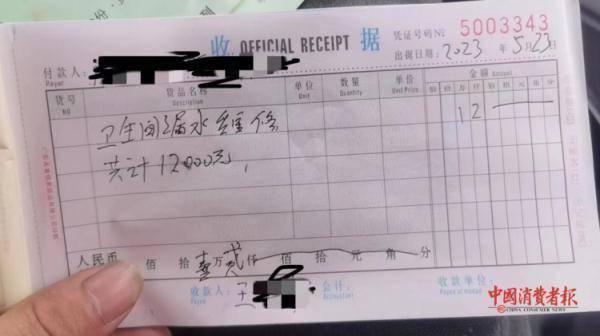 收 OFFICIAL RECEIPT 据
凭证号码№ 5003343
出据日期：2023年5月23日
付款人：
Payer
货号 货品名称 单位 数量 单价 金额 Amount
NO Description Unit Quantity Unit Price 佰 拾 万 仟 佰 拾 元 角 分
卫生间漏水维修 1 2
共计12000元
人民币 佰 拾 壹万 贰仟 佰 拾 元 角 分
收款人： 会计： 收款单位：
Payee Accountant
中國消費者報
CHINA CONSUMER NEWS